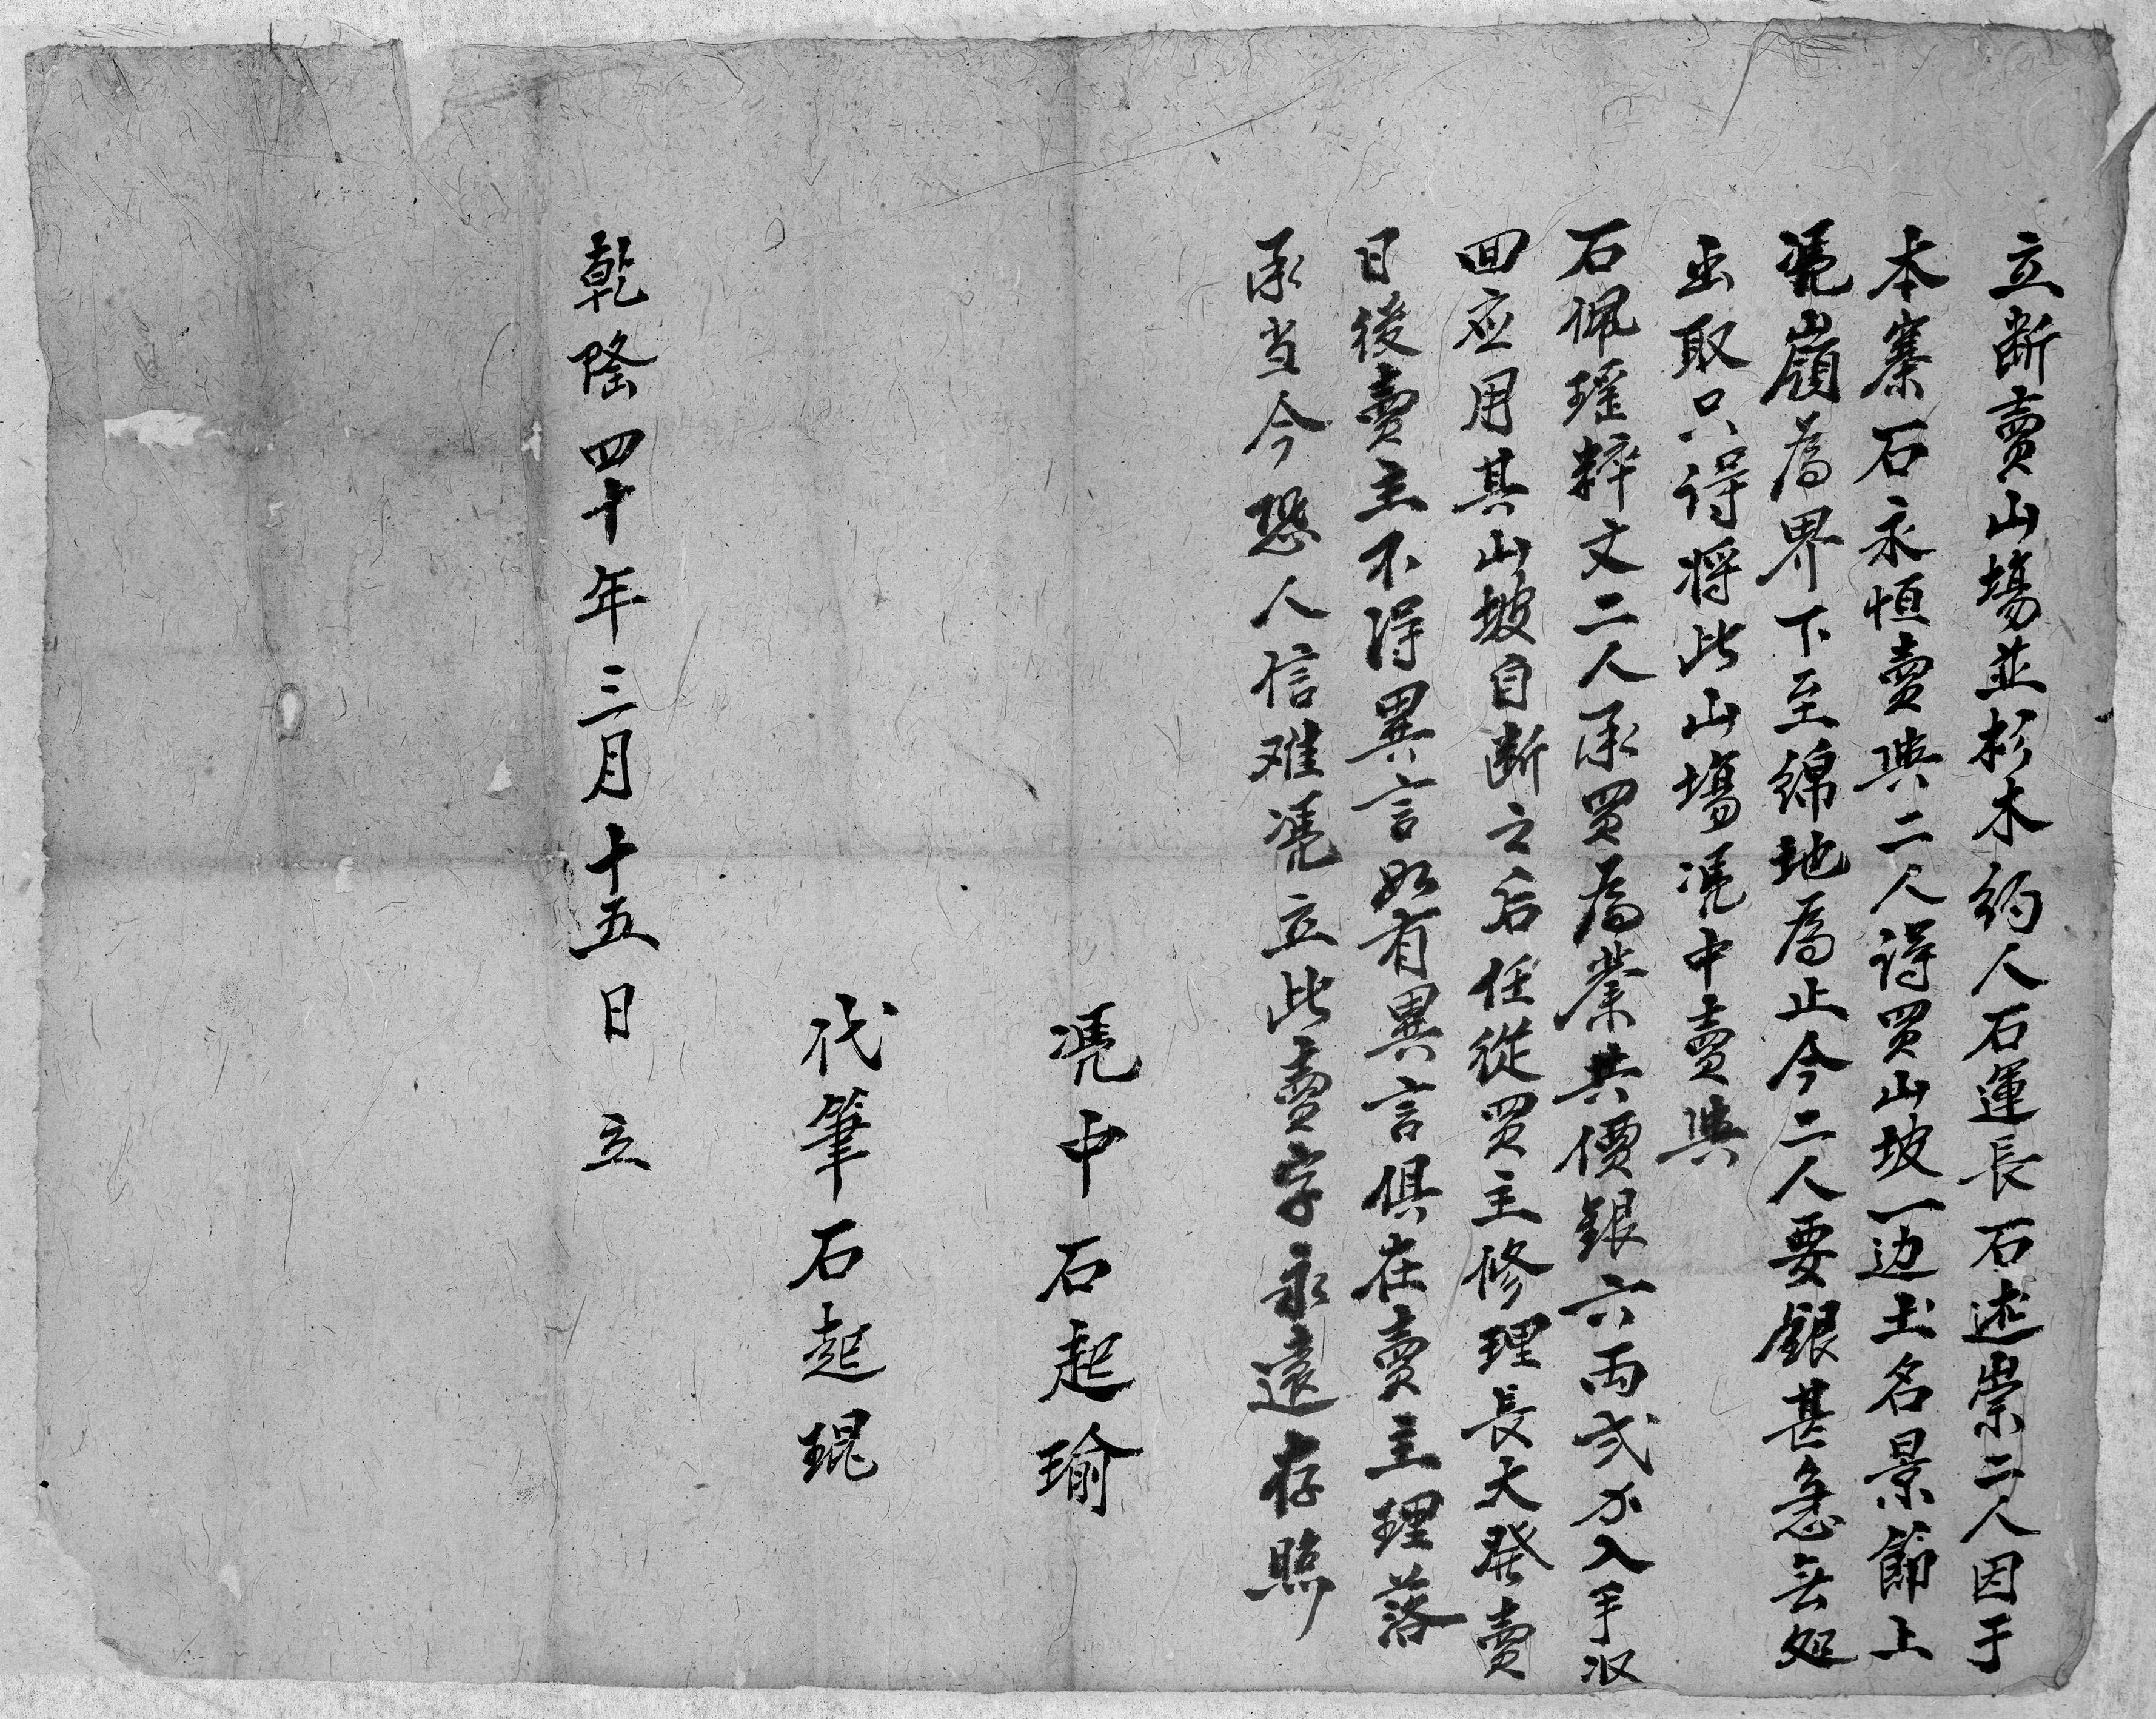 立断賣山塲並杉木約人石運長石述崇二人因于
本寨石永恒賣與二人得買山坡一边土名景節上
凴嶺為界下至綿地為止今二人要銀甚急無处
出取只得将此山塲凴中賣與
石佩瑶粹文二人承買為業共價銀六两弍分入手収
回应用其山坡自断之后任從買主修理長大發賣
日後賣主不得異言如有異言俱在賣主理落
承当今恐人信难凴立此賣字永遠存照
凴中石起瑜
代筆石起琨
乾隆四十年三月十五日立